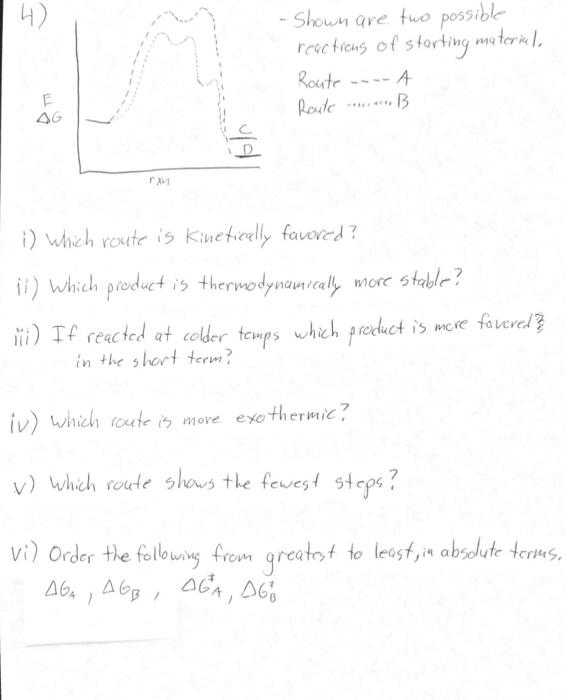 4)
- Shown are two possible
reactions of starting material.
Route ---- A
Route ........ B
E
ΔG
C
D
rxn
i) Which route is Kinetically favored?
ii) Which product is thermodynamically more stable?
iii) If reacted at colder temps which product is more favored?
in the short term?
iv) Which route is more exothermic?
v) Which route shows the fewest steps?
vi) Order the following from greatest to least, in absolute terms.
ΔG_A, ΔG_B, ΔG‡_A, ΔG‡_B